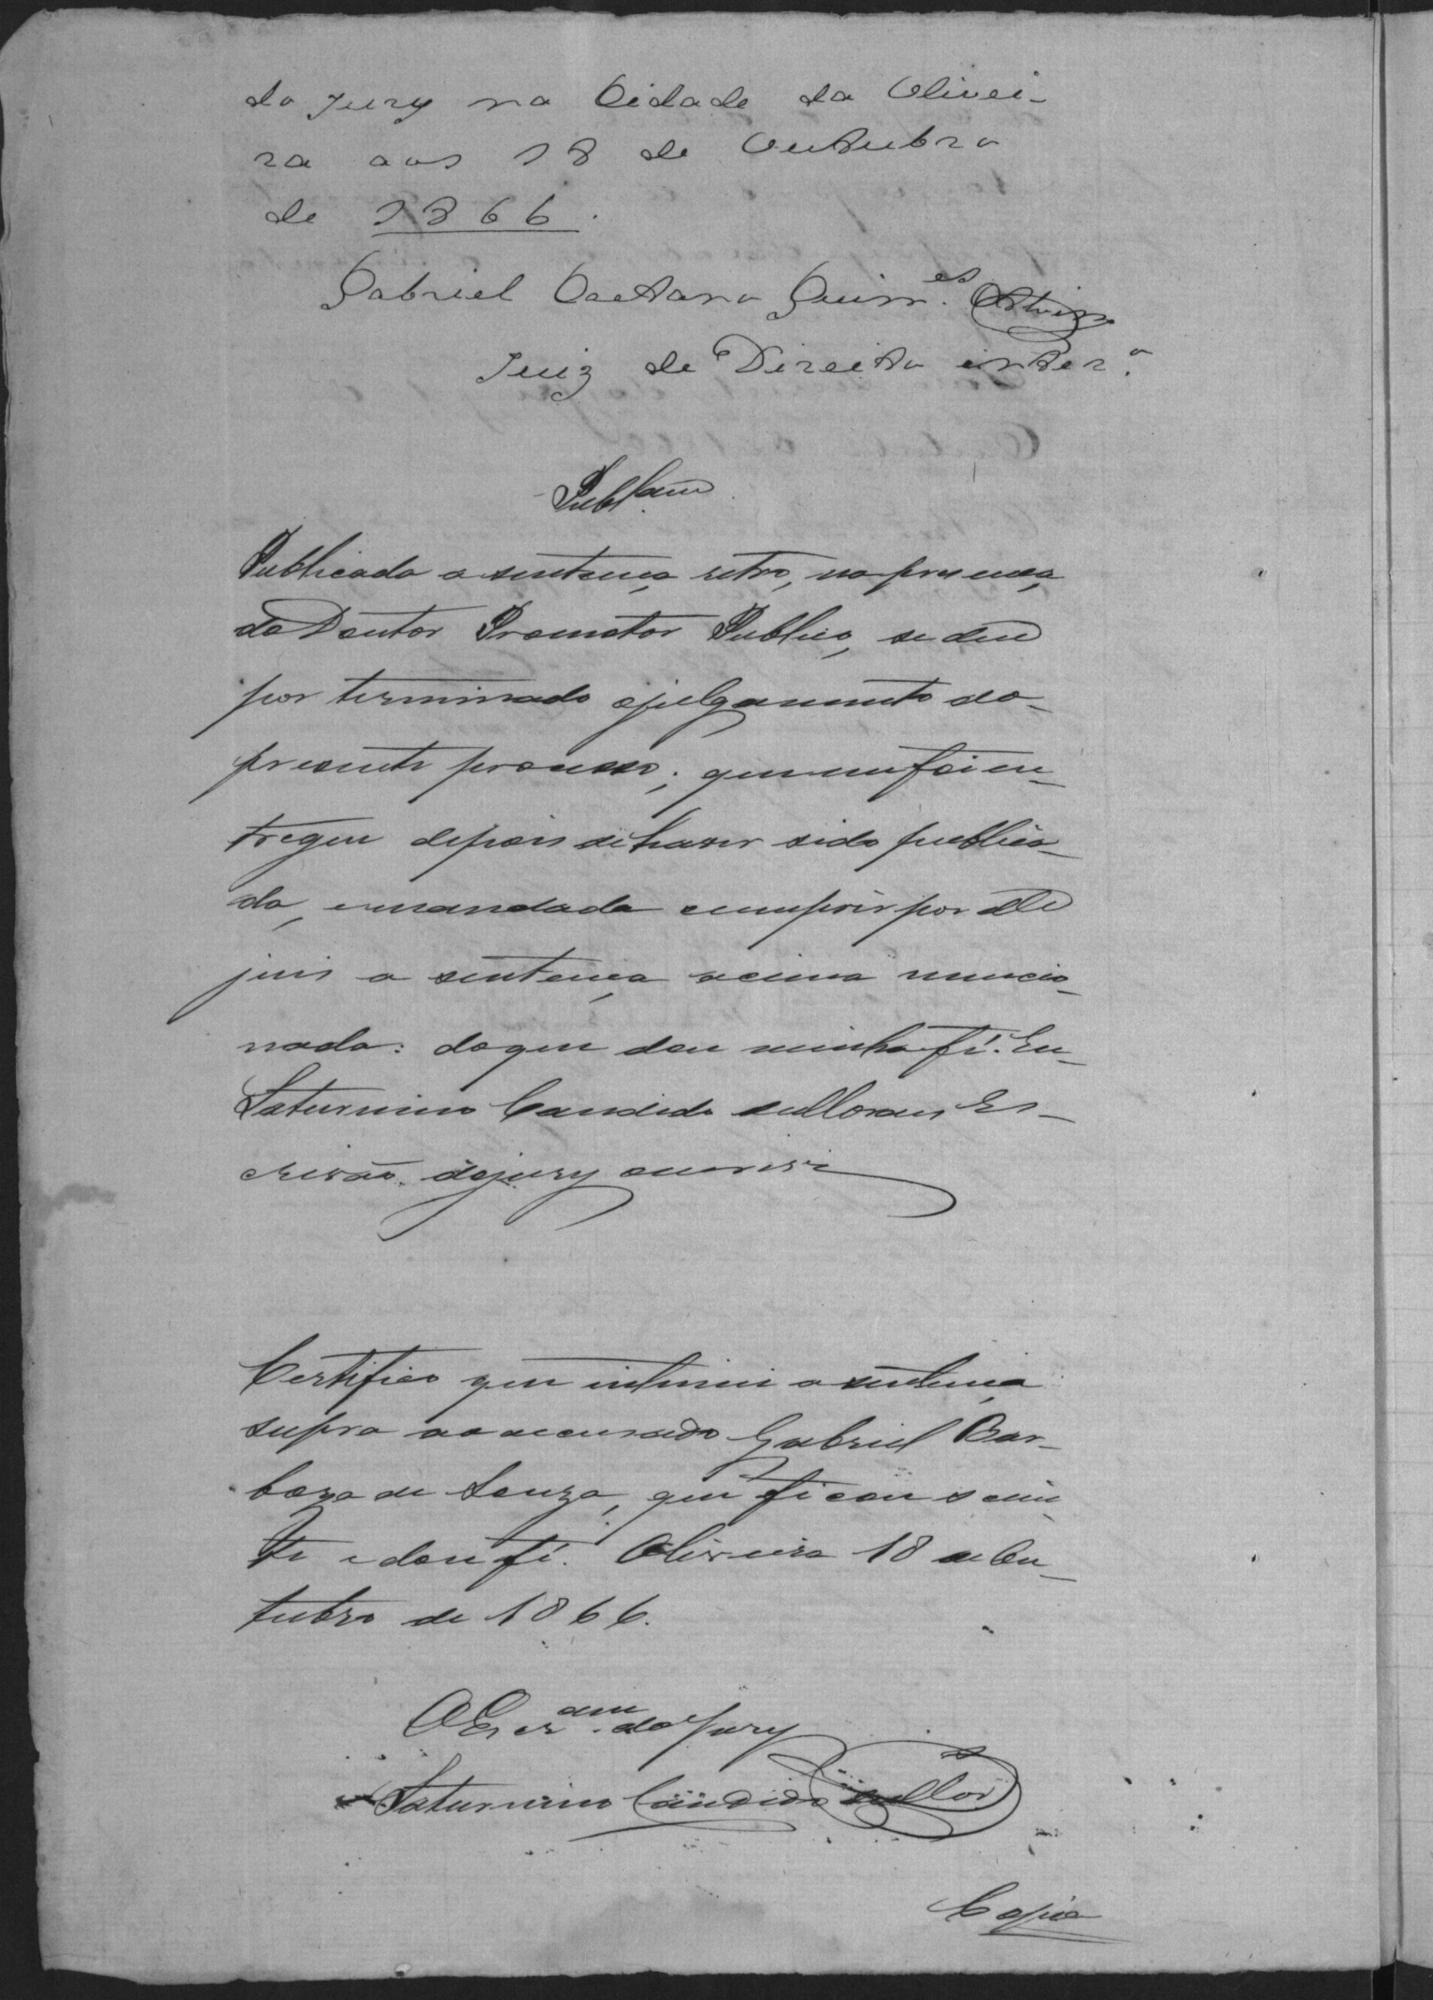 do Jury na Cidade da Olivei-
ra aos 18 de Outubro
de 1866.
Gabriel Caetano Guim.es
Juiz de Direito inter.o
Publ.cam
Publicada a sentença retro, na presença
do Doutor Promotor Publico, se deu
por terminado o julgamento do
presente processo; que me foi en-
tregue depois de haver sido publica-
da, e mandada cumprir por dto
juis a sentença acima mencio-
nada: do que dou minha fé. Eu
Saturnino Candido Es-
crivão do jury escrevi
Certifico que intimei a sentença
supra ao accusado Gabriel Bar-
boza de Souza, que ficou scien-
te e dou fé. Oliveira 18 de Ou-
tubro de 1866.
O Escr.am do Jury
Saturnino Candido
Copia